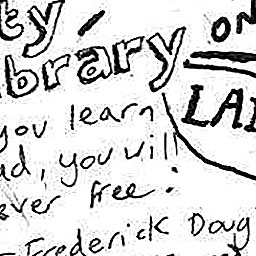 ty
brary
ON
LAI
you learn
ad, you will
ever free.
Frederick Doug